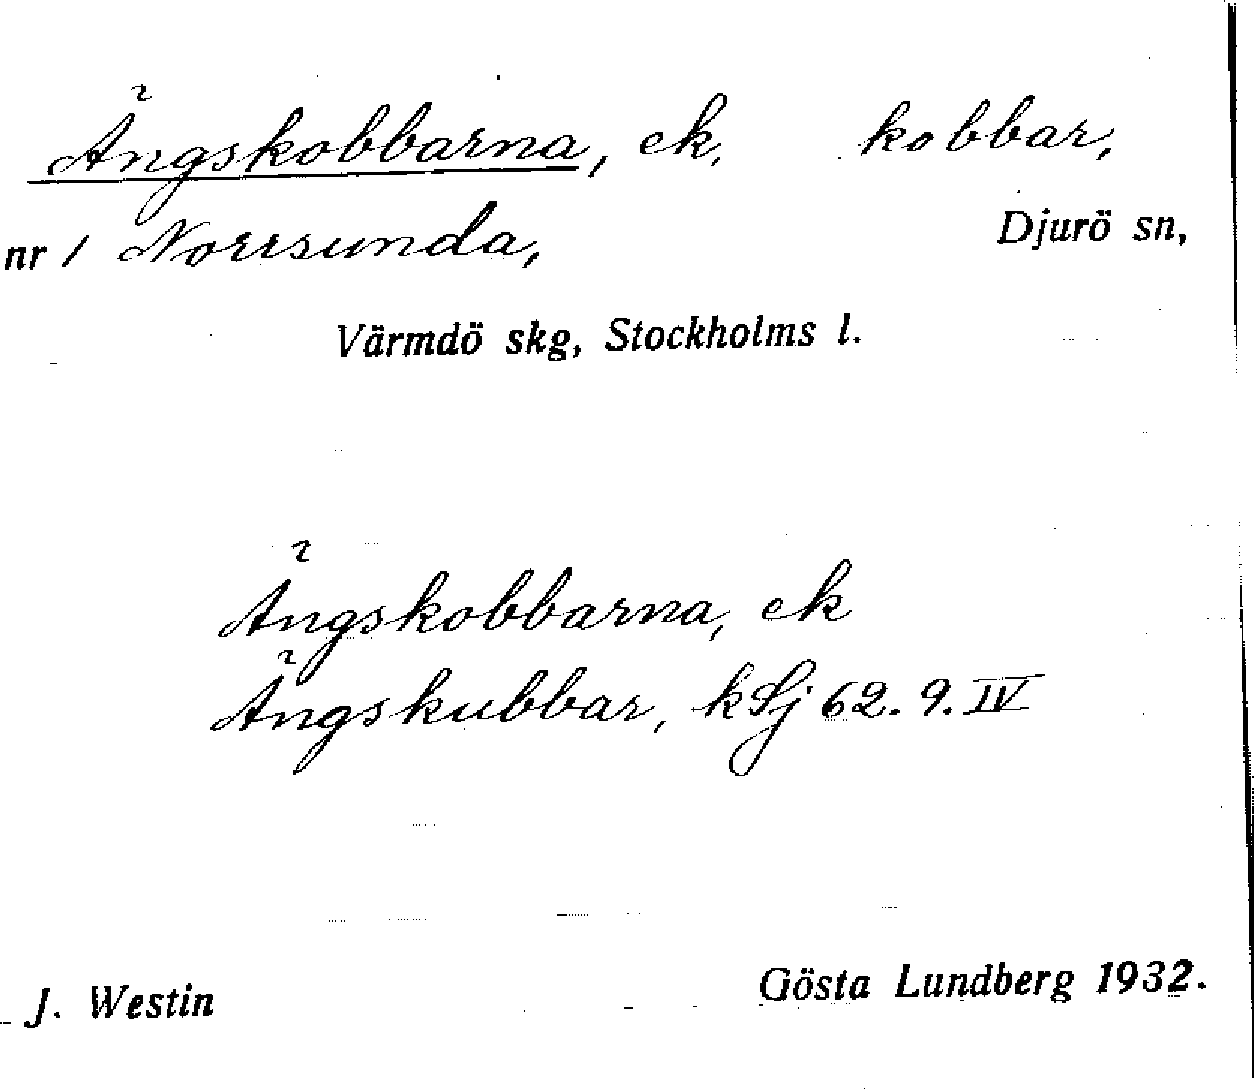 Ängskobbarna, ek. kobbar,
nr 1 Norrsunda, Djurö sn,
Värmdö skg, Stockholms l.
Ängskobbarna, ek
Ängskubbar, kSj 62. 9. IV
J. Westin Gösta Lundberg 1932.